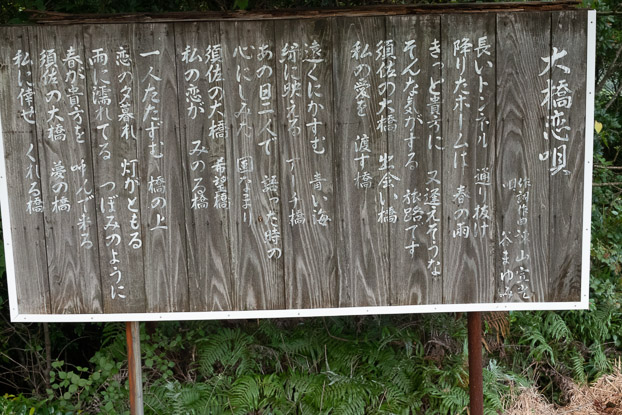 大橋恋唄
作詞作曲 山
唄 谷まゆみ
長いトンネル 通り抜け
降りたホームは 春の雨
きっと貴方に 又逢えそうな
そんな気がする 旅路です
須佐の大橋 出会い橋
私の愛を 渡す橋
遠くにかすむ 青い海
緑に映える アーチ橋
あの日二人で 語った時の
心にしみた 国なまり
須佐の大橋 希望橋
私の恋が みのる橋
一人たたずむ 橋の上
恋の夕暮れ 灯がともる
雨に濡れてる つぼみのように
春が貴方を 呼んで来る
須佐の大橋 夢の橋
私に倖せ くれる橋